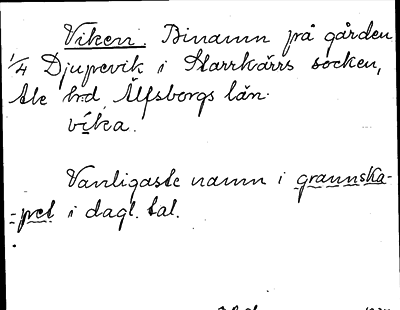 Viken. Binamn på gården
1/4 Djupevik i Starrkärrs socken,
Ale hrd, Älfsborgs län.
vika.
Vanligaste namn i grannska-
-pet i dagl. tal.